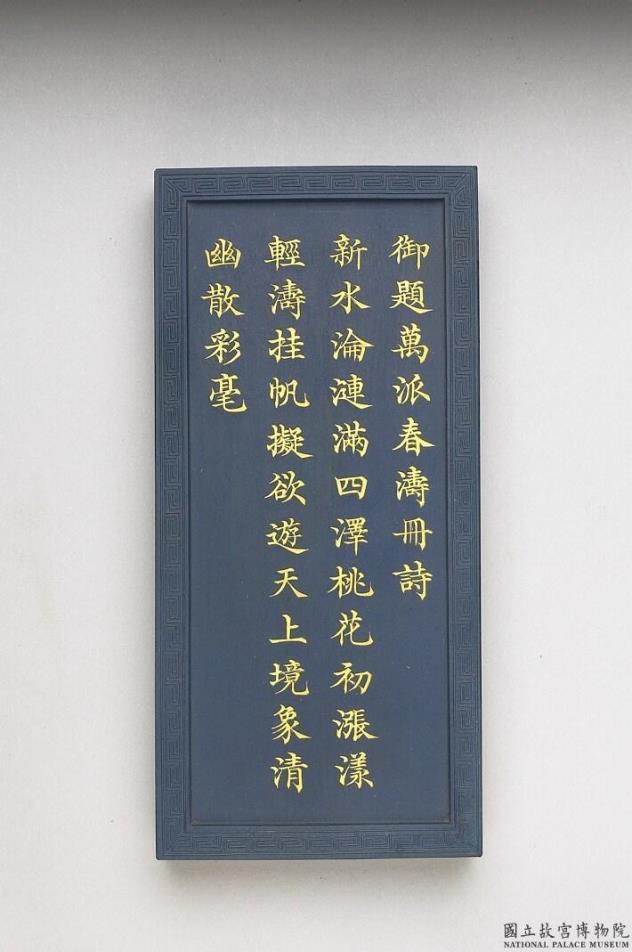 御題萬派春濤冊詩
新水淪漣滿四澤桃花初漲漾
輕濤挂帆擬欲遊天上境象清
幽散彩毫
國立故宮博物院
NATIONAL PALACE MUSEUM